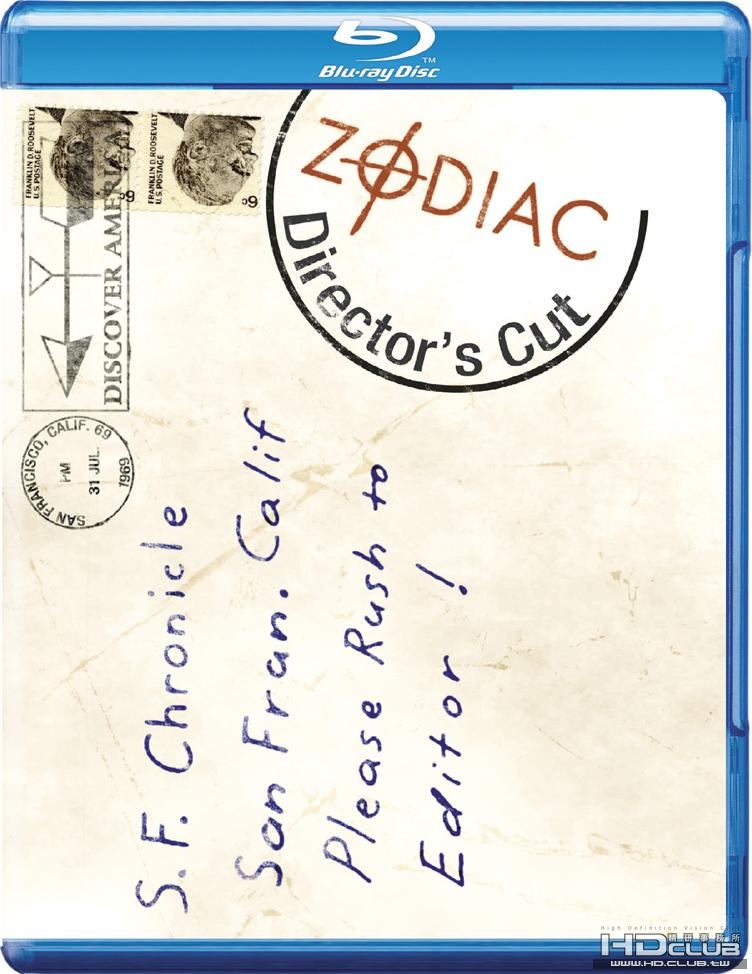 Blu-ray Disc™
FRANKLIN D. ROOSEVELT
U.S. POSTAGE
6c
FRANKLIN D. ROOSEVELT
U.S. POSTAGE
6c
DISCOVER AMERICA
ZODIAC
Director's Cut
SAN FRANCISCO, CALIF. 69
PM
31 JUL.
1969
S.F. Chronicle
San Fran. Calif
Please Rush to
Editor!
High Definition Vision Club
HDCLUB
精研事務所
www.HD.CLUB.tw